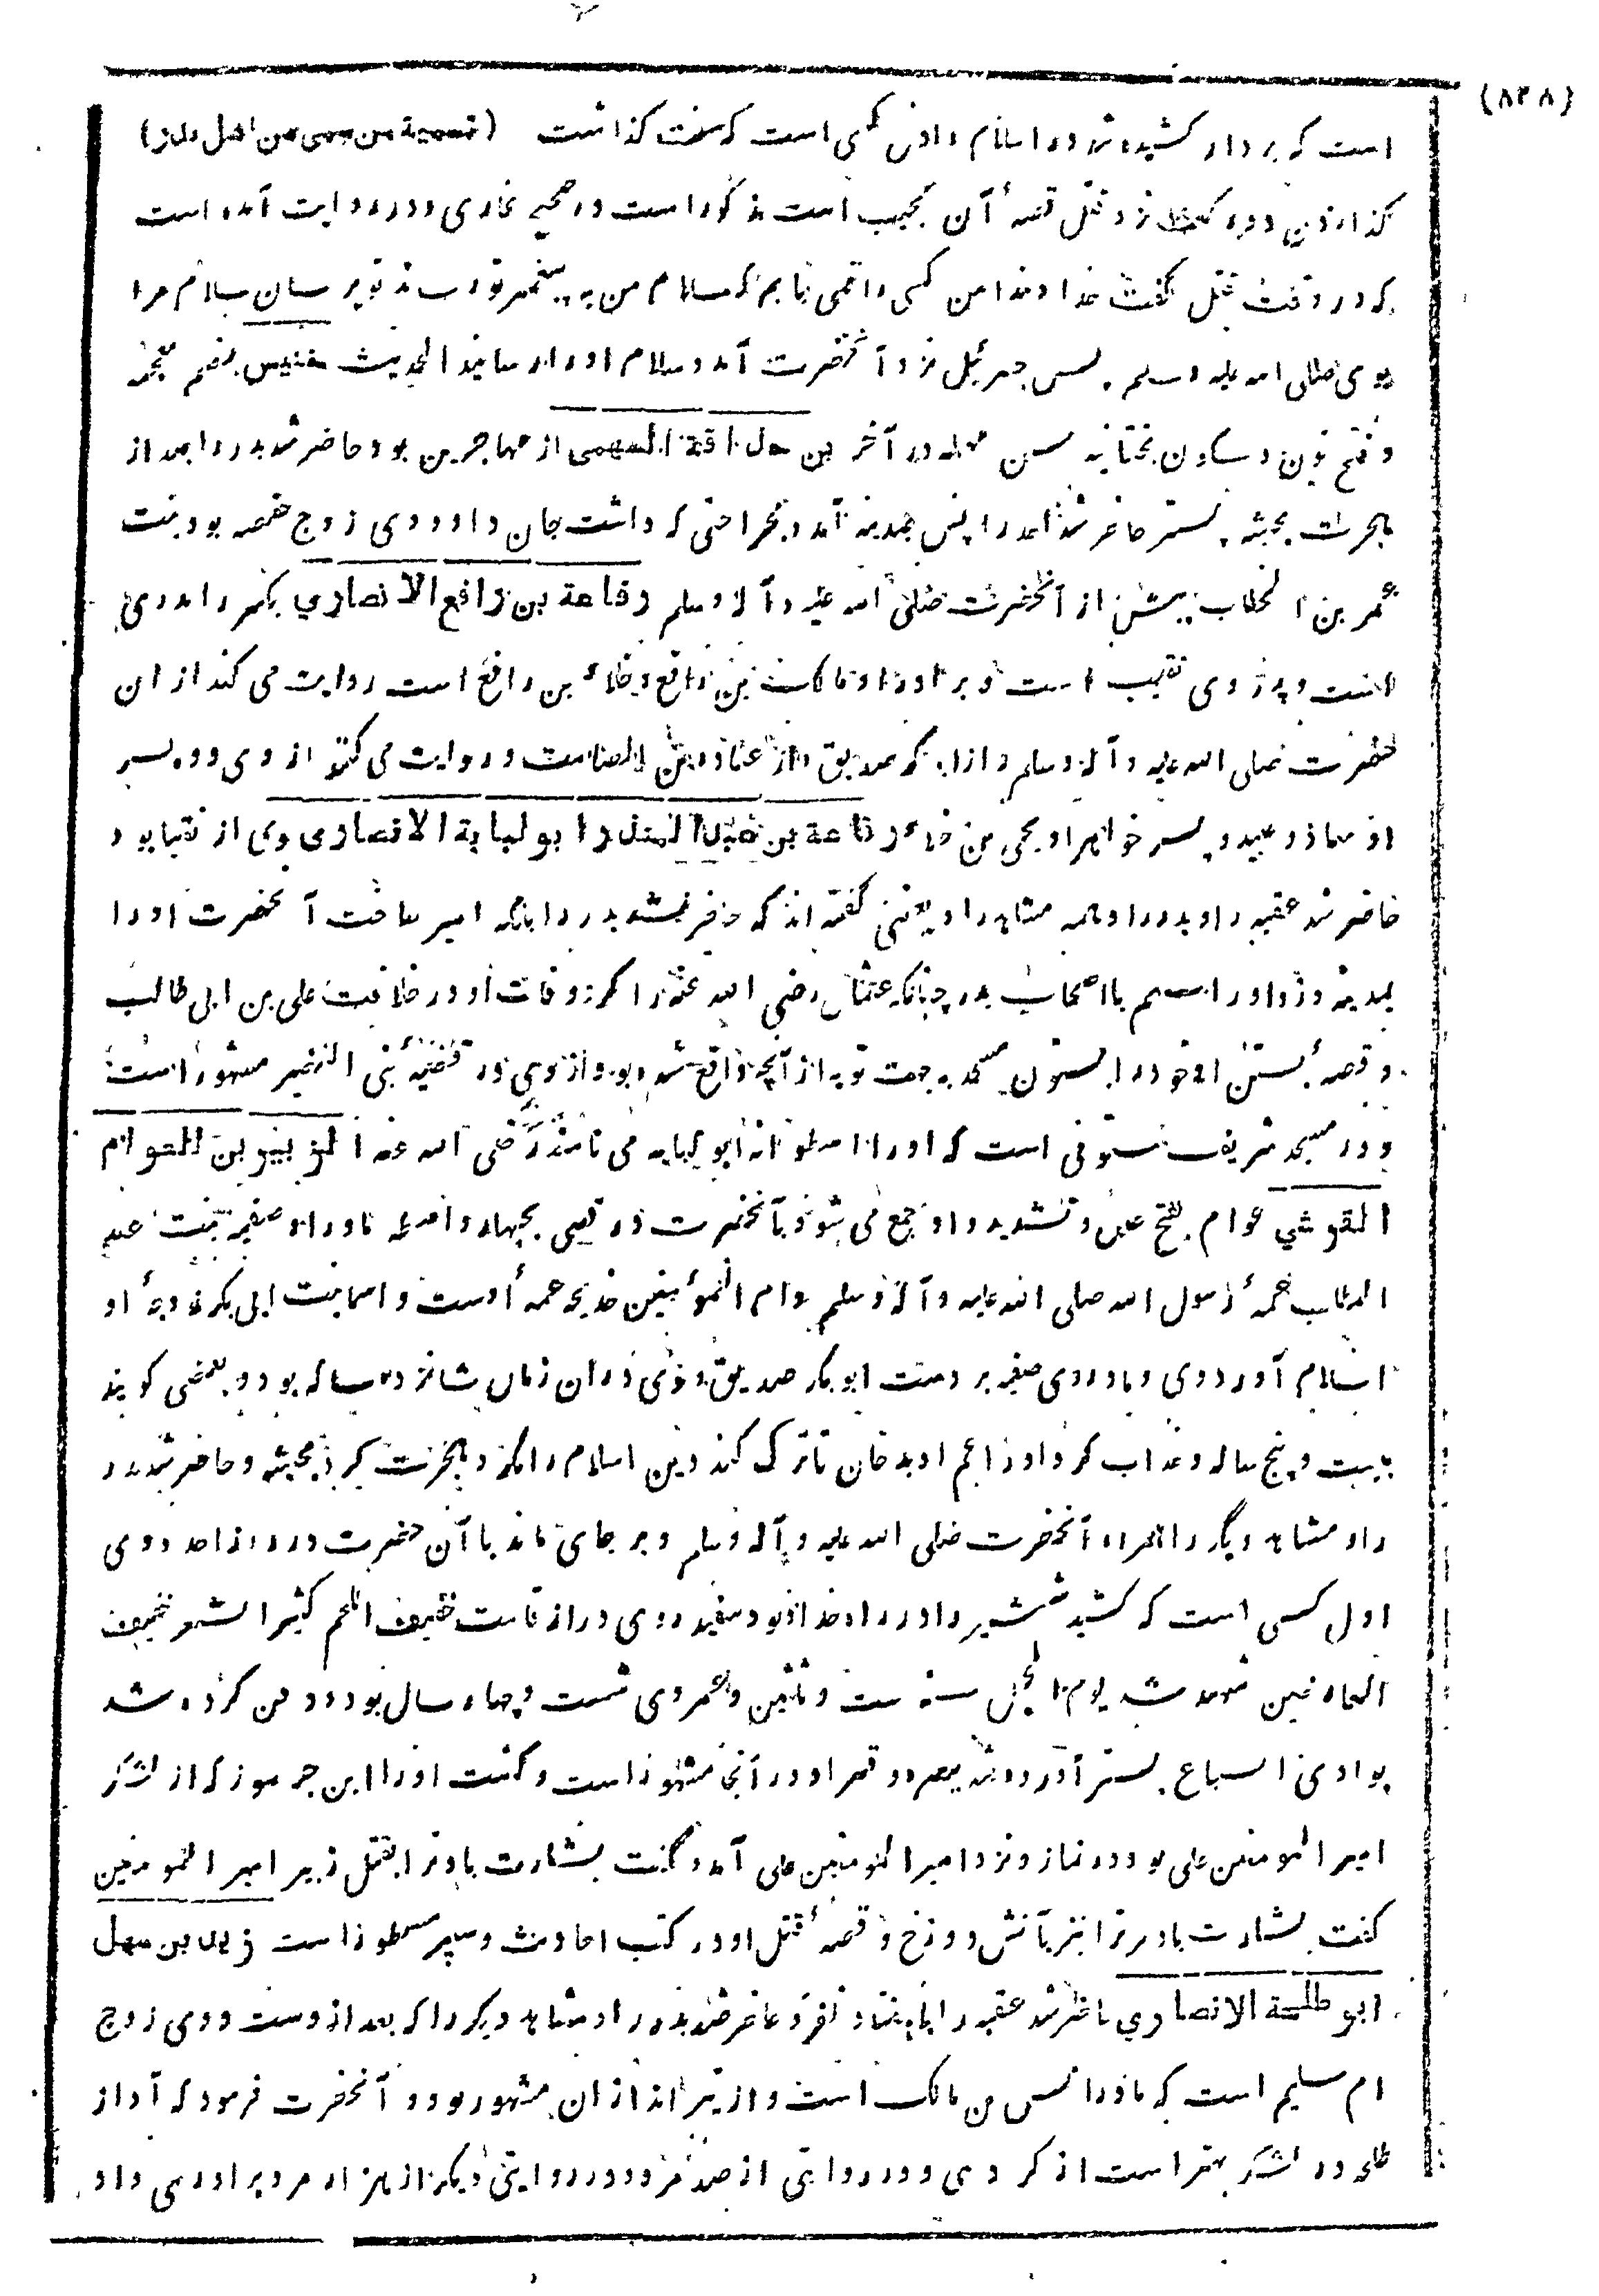 (٨٢٨)
(تسمية من سمى من اهل بدر)
است که بر دار کشیده شد در اسلام و اول کسی است که سنت گذاشت
گذاردن دو رکعت نزد قتل قصهٔ آن عجیب است مذکور است در صحیح بخاری و در روایت آمده است
که در وقت قتل گفت خداوندا من کسی را نمی یابم که سلام من به پیغمبر تو رساند تو برسان سلام مرا
بوی صلی الله علیه وسلم پس جبرئیل نزد آنحضرت آمد و سلام او را رسانید الحدیث خنیس بضم معجمه
و فتح نون و سکون تحتانیه سین مهمله در آخر بن حذافة السهمی از مهاجرین بود حاضر شد بدر را بعد از
هجرت بحبشه پستر حاضر شد احد را پس بمدینه آمد و بجراحتی که داشت جان داد و وی زوج حفصه بود بنت
عمر بن الخطاب پیش از آنحضرت صلی الله علیه و آله وسلم رفاعة بن رافع الانصاري بکسر را بدری
است و پدر وی نقیب است و برادر او مالک بن رافع و خلاد بن رافع است روایت می کند از ان
حضرت صلی الله علیه و آله وسلم و از ابی بکر صدیق و از عبادة بن الصامت و روایت می کنند از وی دو پسر
او معاذ و عبید و پسر خواهر او یحیی بن خلاد رفاعة بن عبد المنذر ابو لبابة الانصاری وی از نقبا بود
حاضر شد عقبه را و بدر را و همه مشاهد را و بعضی گفته اند که حاضر نشد بدر را بلکه امیر ساخت آنحضرت او را
بمدینه و زد او را سهم با اصحاب بدر چنانکه عثمان رضی الله عنه را کرد وفات او در خلافت علی بن ابی طالب
و قصهٔ بستن او خود را بستون مسجد بجهت توبه از آنچه واقع شده بود از وی در قضیهٔ بنی النضیر مشهور است
و در مسجد شریف ستونی است که او را اسطوانه ابو لبابه می نامند رضی الله عنه الزبیر بن العوام
القرشي عوام بفتح عین و تشدید واو جمع می شود با آنحضرت در قصی بچهار واسطه مادر او صفیه بنت عبد
المطلب عمهٔ رسول الله صلی الله علیه و آله وسلم و ام المؤمنین خدیجه عمهٔ اوست و اسما بنت ابی بکر زوجهٔ او
اسلام آورد وی و مادر وی صفیه بر دست ابو بکر صدیق و وی دران زمان شانزده ساله بود و بعضی گویند
بیست و پنج ساله و عذاب کرد او را عم او بدخان تا ترک کند دین اسلام را نکرد و هجرت کرد بحبشه و حاضر شد بدر
را و مشاهد دیگر را همراه آنحضرت صلی الله علیه و آله وسلم و بر جای ماند با آن حضرت در روز احد و وی
اول کسی است که کشید شمشیر را در راه خدا و بود سفید روی دراز قامت خفیف اللحم کثیر الشعر خفیف
العارضین شهید شد یوم الجمل سنه ست و ثلثین و عمر وی شصت و چهار سال بود و دفن کرده شد
بوادی السباع پستر آورده شد ببصره و قبر او در آنجا مشهور است و کشت او را ابن جرموز که از لشکر
امیر المومنین علی بود در نماز و نزد امیر المومنین علی آمد و گفت بشارت باد ترا بقتل زبیر امیر المومنین
گفت بشارت باد مر ترا نیز بآتش دوزخ و قصهٔ قتل او در کتب احادیث و سیر مسطور است زید بن سهل
ابو طلحة الانصاري حاضر شد عقبه را با هفتاد نفر و حاضر شد بدر را و مشاهد دیگر را که بعد از وست و وی زوج
ام سلیم است که مادر انس بن مالک است و از تیر اندازان مشهور بود و آنحضرت فرمود که آواز
طلحه در لشکر بهتر است از گروهی و در روایتی از صد مرد و در روایتی دیگر از هزار مرد برادری داد